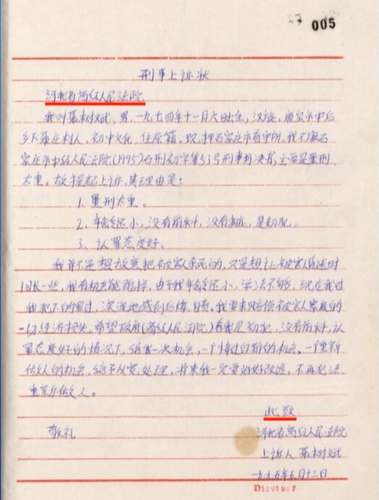 005
刑事上诉状
河北省高级人民法院
我叫聂树斌，男，一九七四年十一月六日生，汉族，
乡下聂庄村人，初中文化，住原籍，现押石家庄市看守所，我不服石
家庄市中级人民法院(1995)石刑初字第53号刑事判决书，主要是量刑
太重。故提起上诉，其理由是：
1、量刑太重。
2、年龄还小，没有前科，没有劣迹，是初犯。
3、认罪态度好。
我并不是想故意把被害人杀死的，只是想让被害人昏迷时
间长一些，我有机会能逃掉，由于我年龄还小，学法不够，现在我对
我犯下的罪过，深深地感到后悔、自责。我要求赔偿被害人家庭的
一切经济损失，希望政府(高级人民法院)看我是初犯，没有前科，认
罪态度好的情况下，给我一次机会，一个悔过自新的机会，一个重新
做人的机会，给予从宽处理，将来我一定要好好改造，不再犯法，
重新做人。
此致
敬礼
河北省高级人民法院
上诉人 聂树斌
一九九五年三月十三日